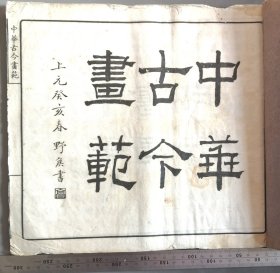 中華
古今
畫範
上元癸亥春 野矦書
中華古今畫範